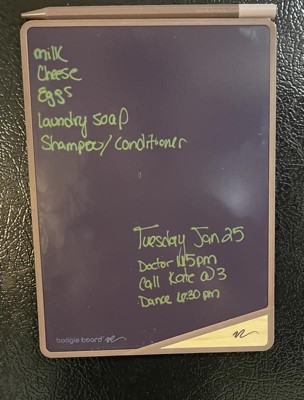 milk
Cheese
Eggs
laundry soap
Shampoo/Conditioner
Tuesday Jan 25
Doctor 45pm
Call Kate @ 3
Dance 6:30 pm
boogie board